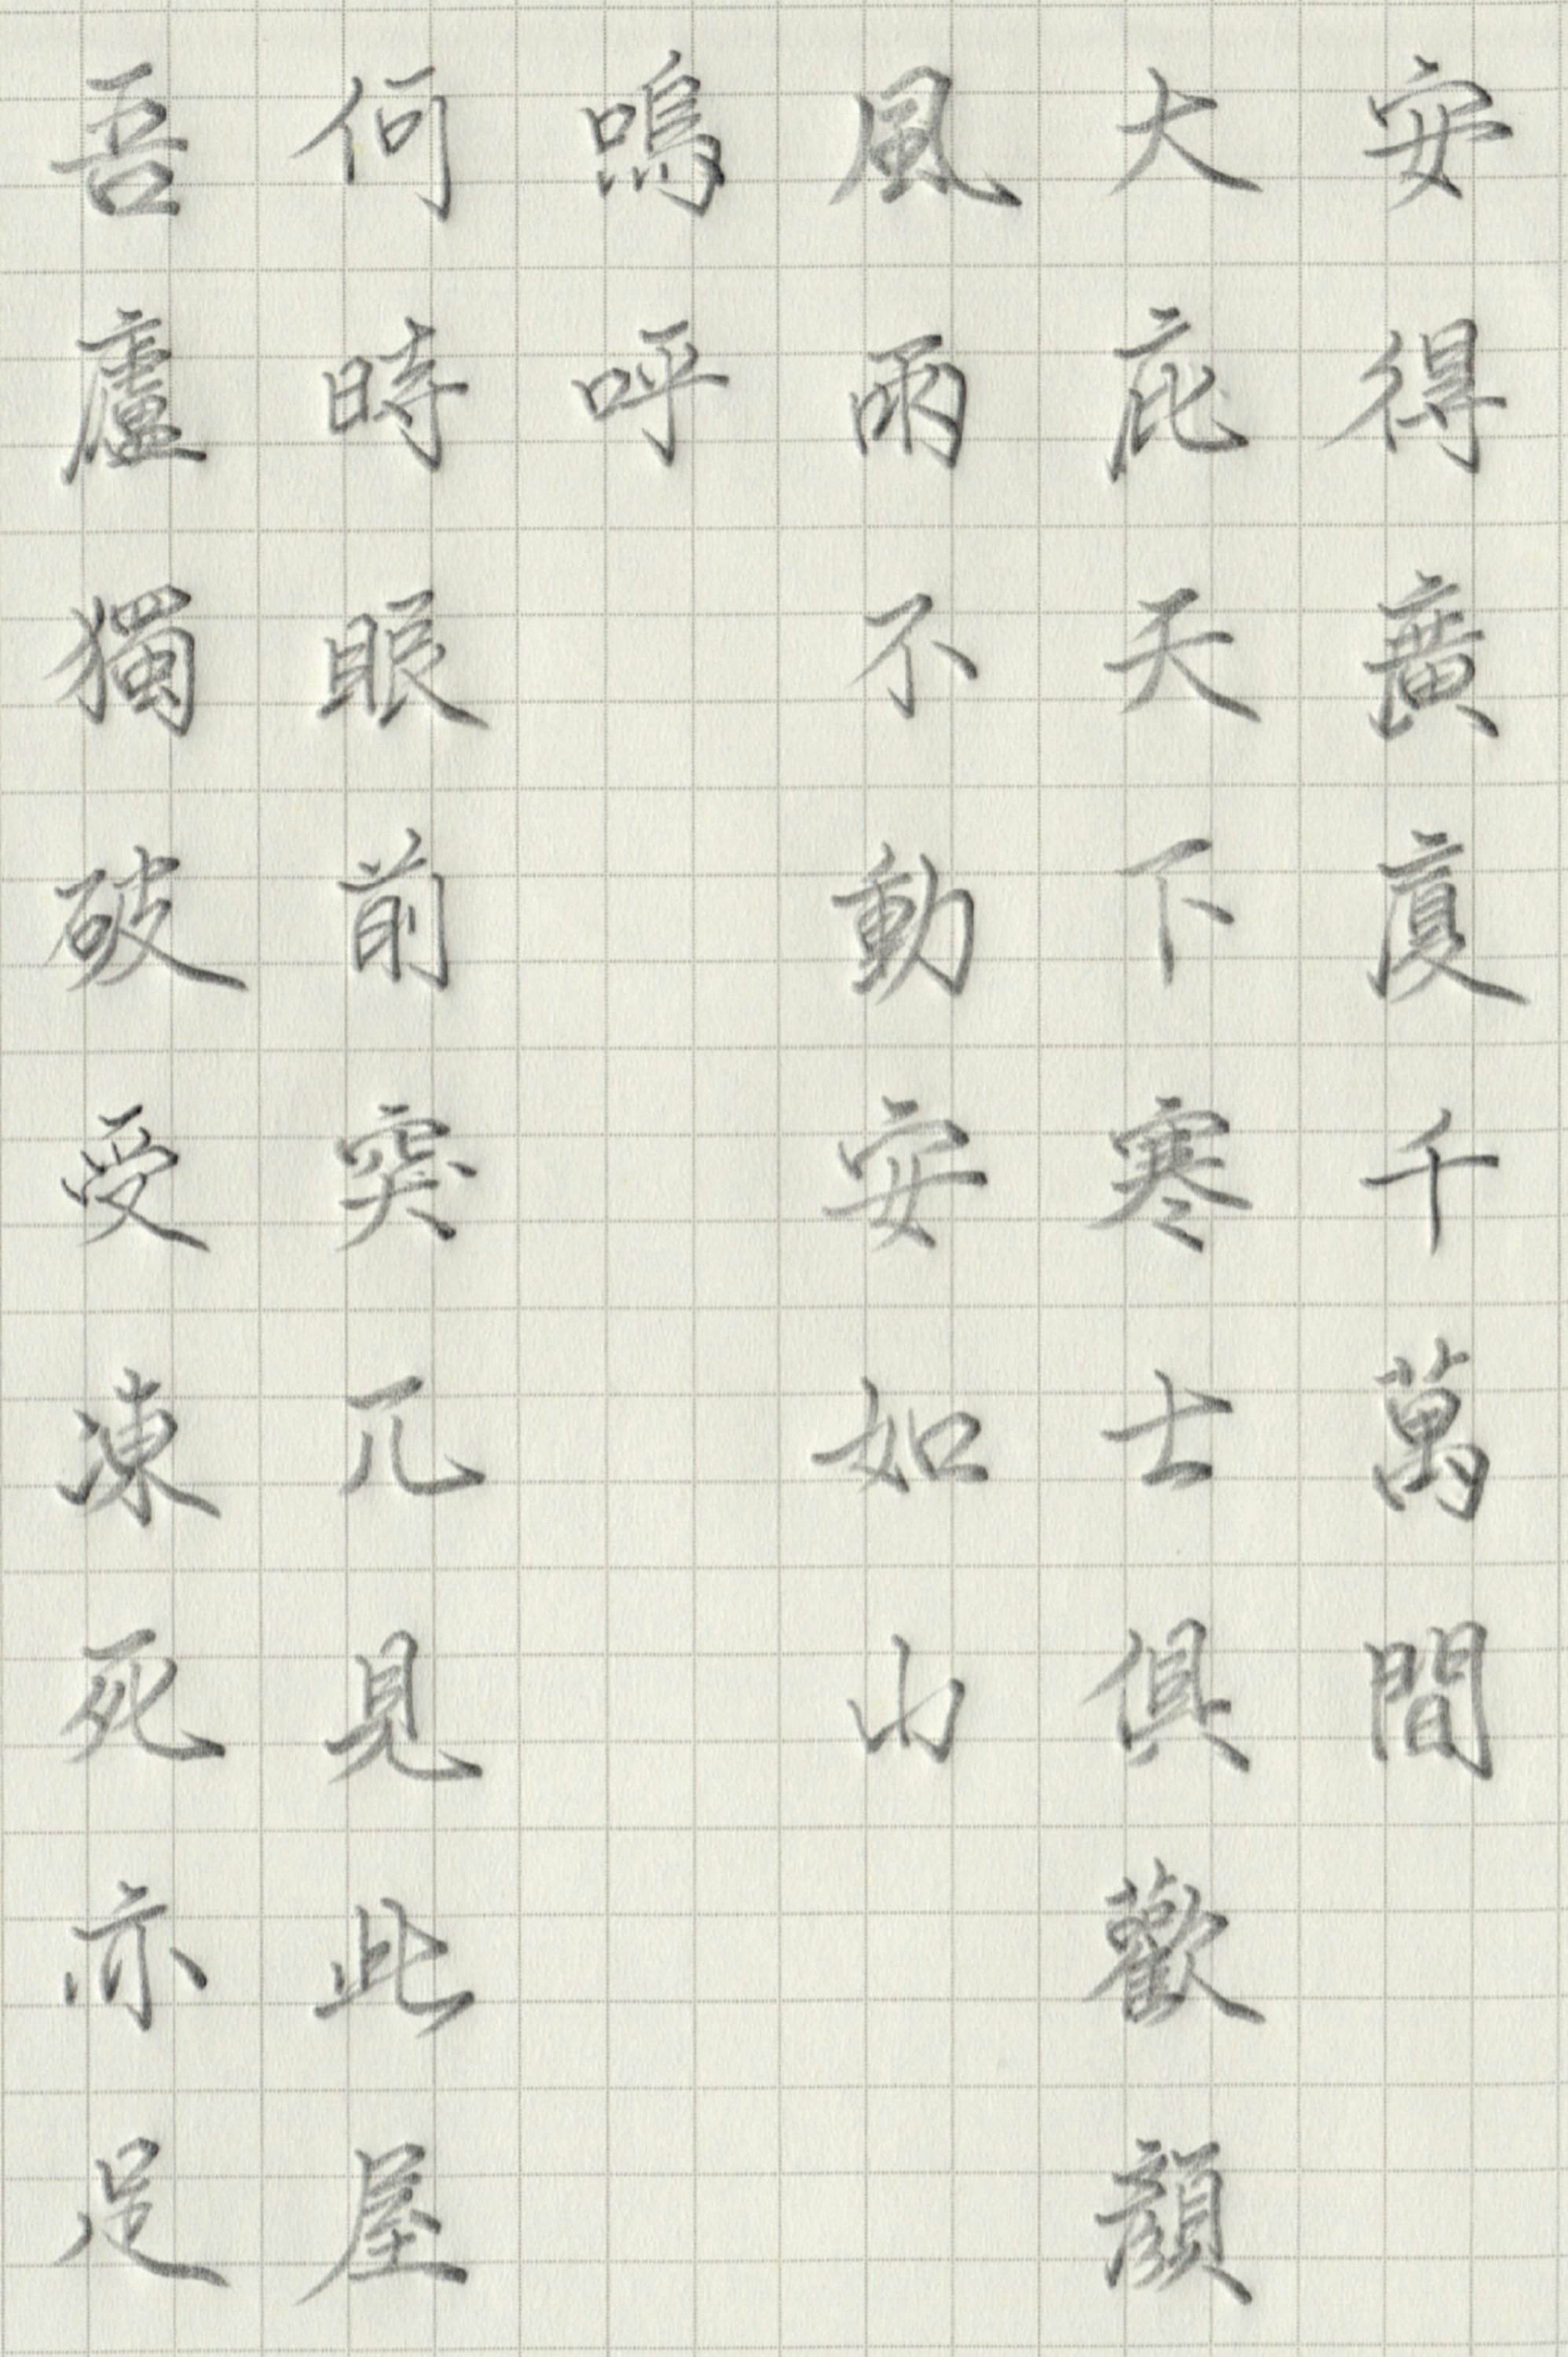 安得廣廈千萬間
大庇天下寒士俱歡顏
風雨不動安如山
嗚呼
何時眼前突兀見此屋
吾廬獨破受凍死亦足